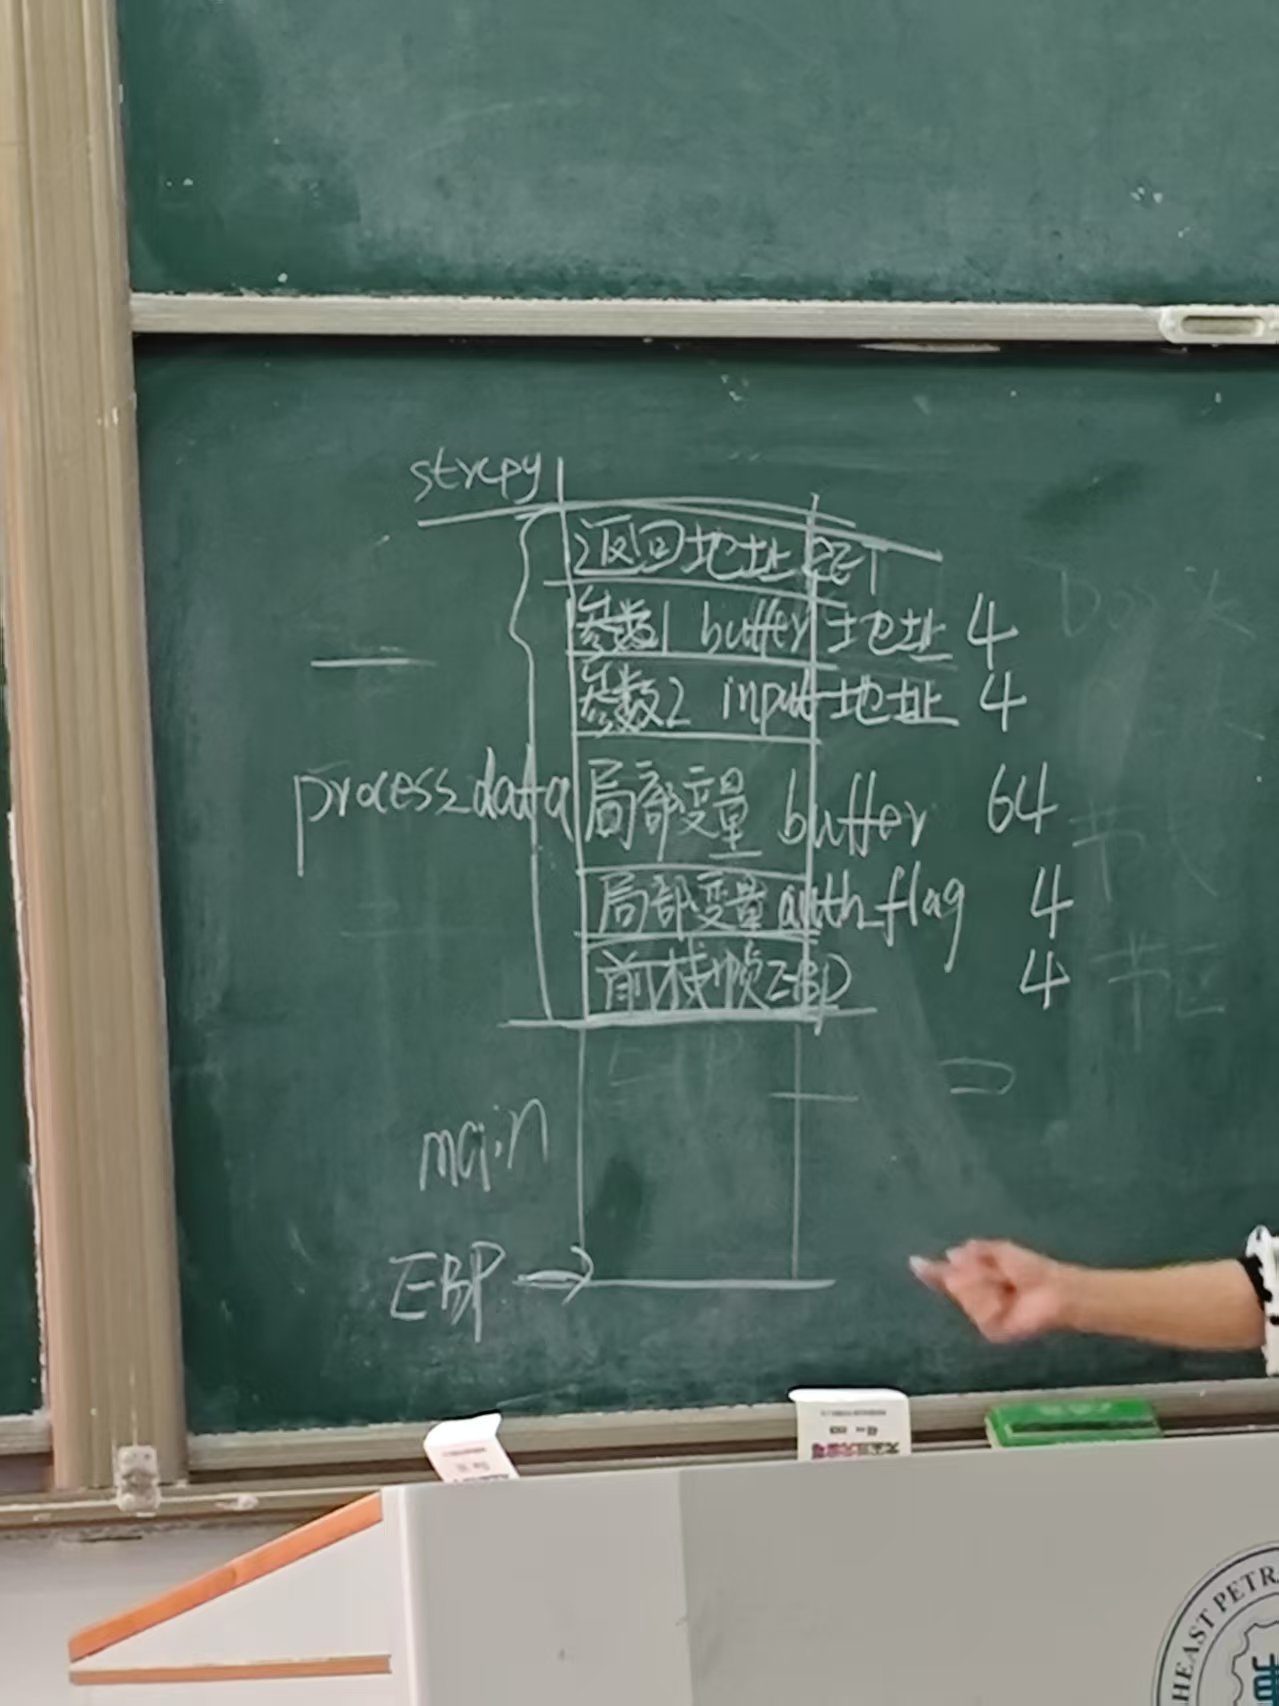 strcpy
返回地址 RET
参数1 buffer 地址 4
参数2 input 地址 4
process_data 局部变量 buffer 64
局部变量 auth_flag 4
前栈帧EBP 4
main
EBP →
HEAST PETR